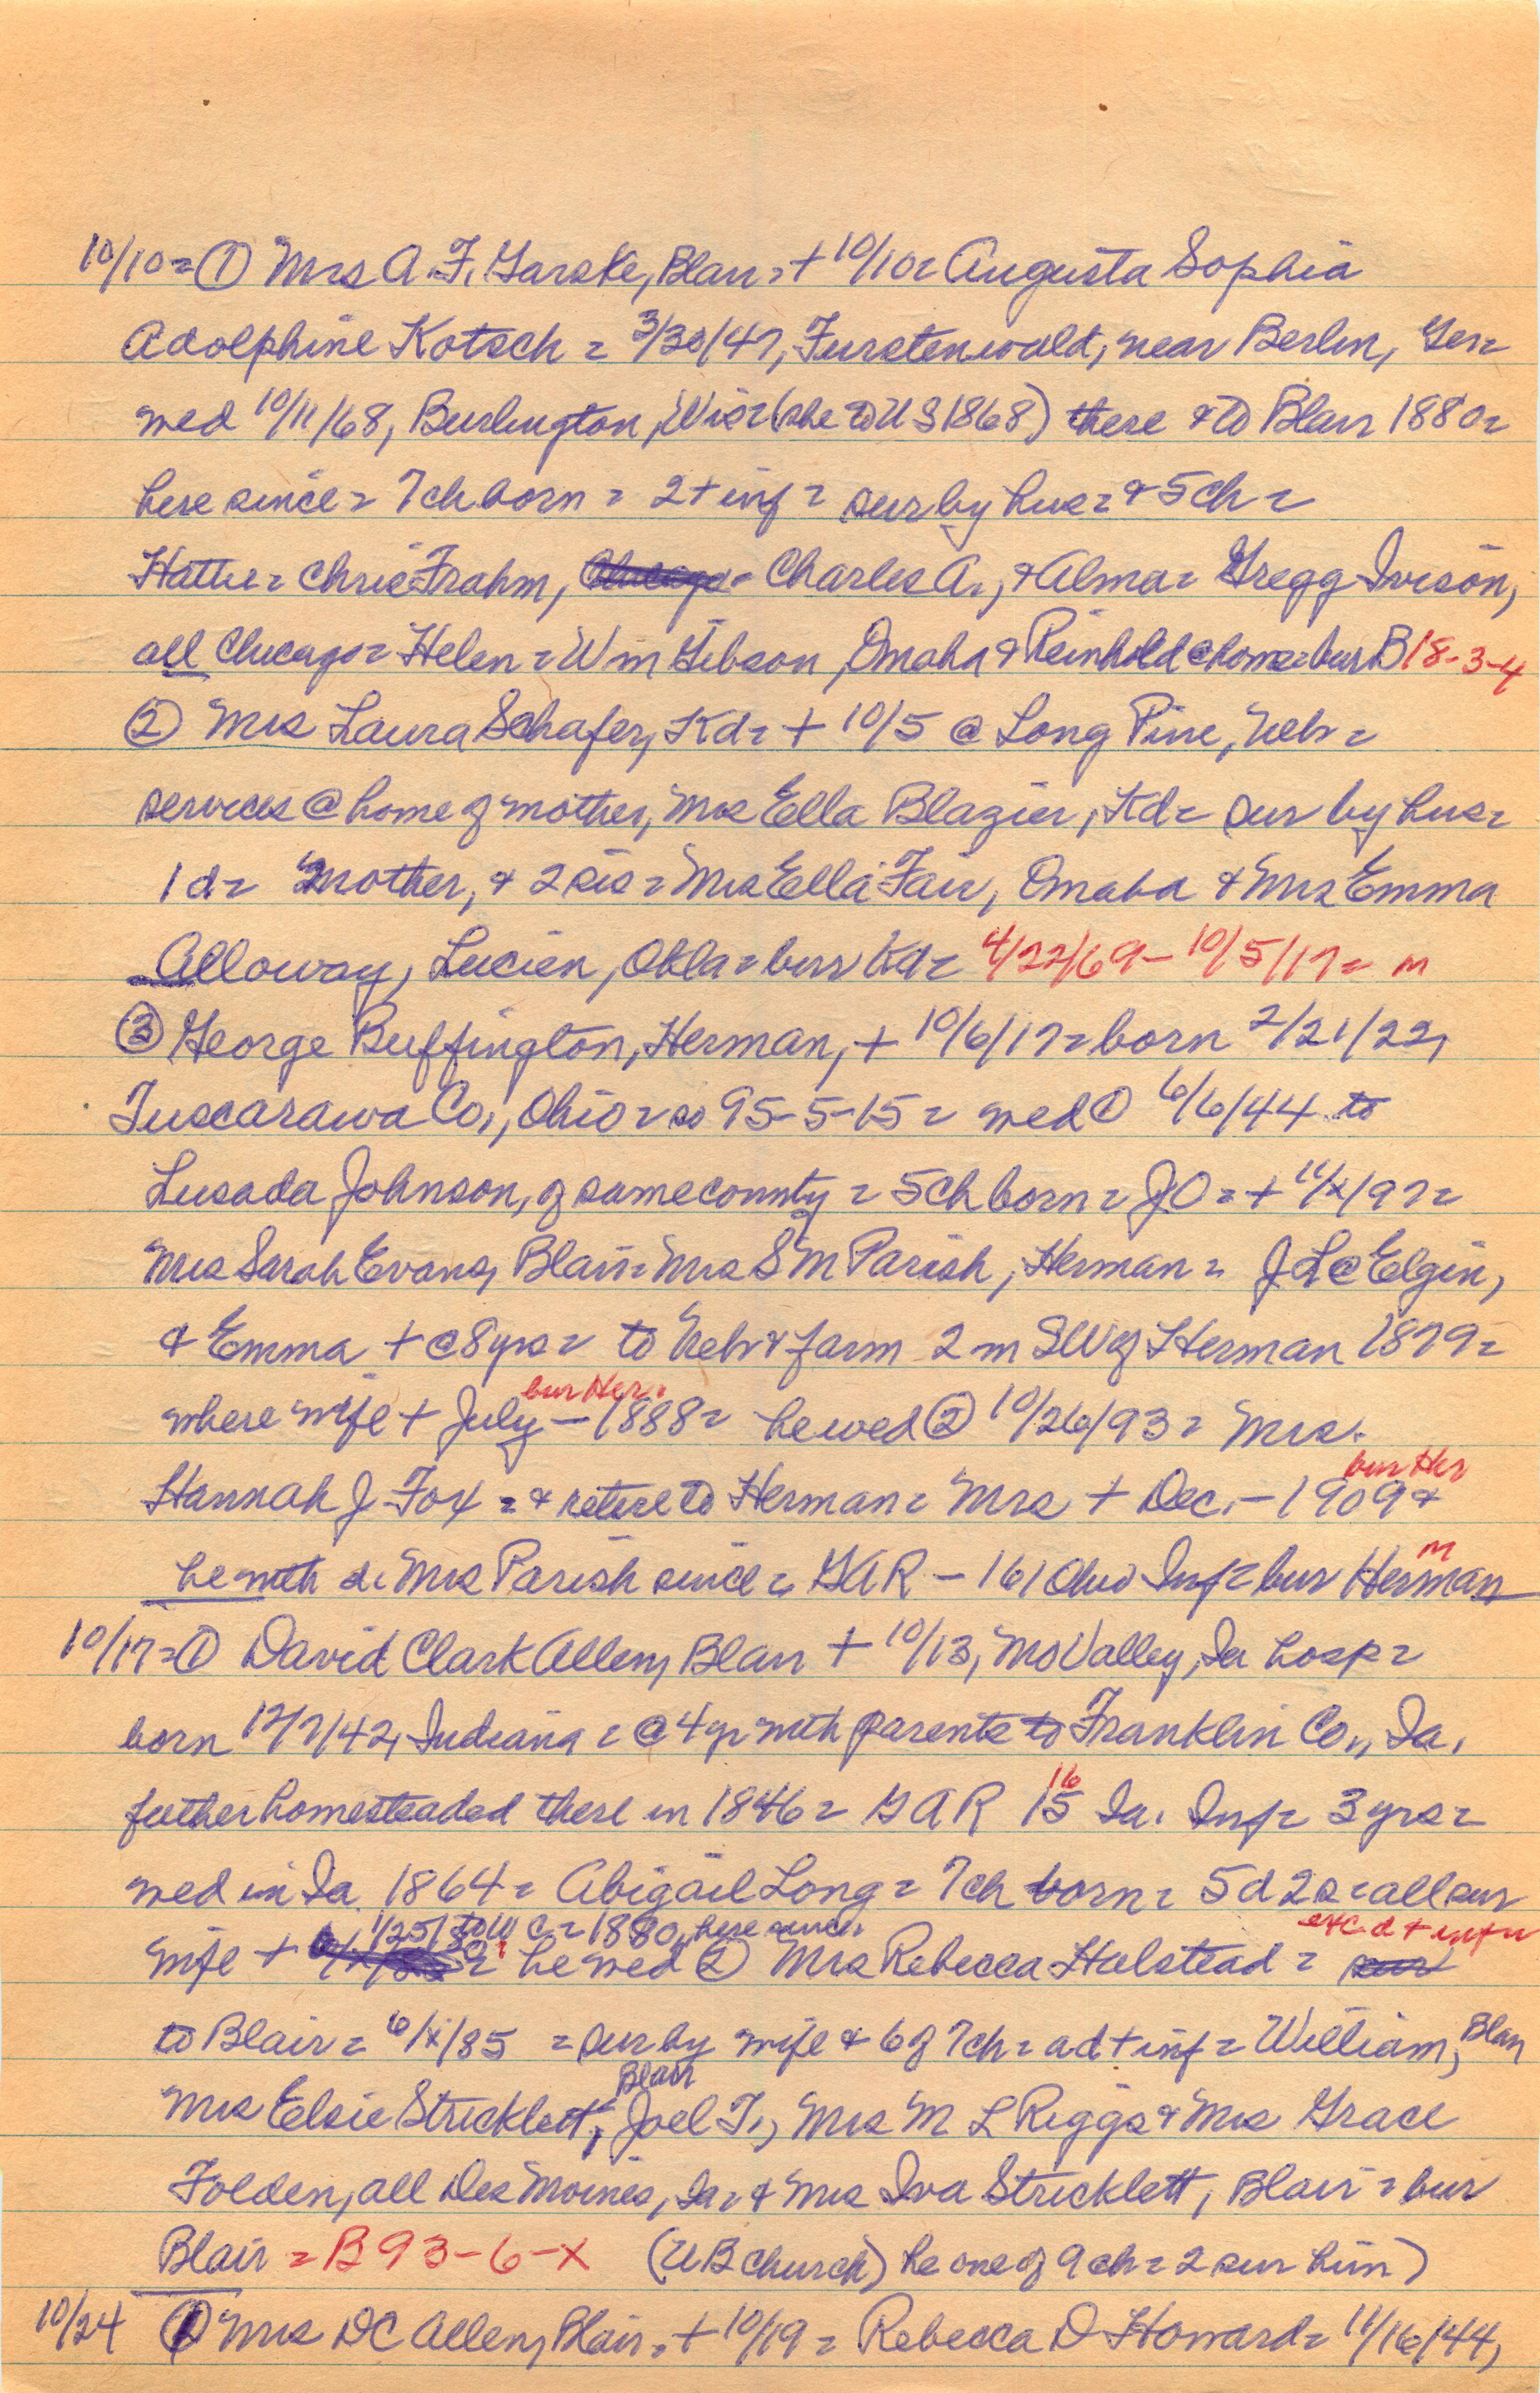 10/10 = ① Mrs A. F. Garske, Blair, + 10/10 = Augusta Sophia
Adolphine Kotsch = 3/30/47, Furstenwald, near Berlin, Ger =
wed 10/11/68, Burlington, Wis = (she to US 1868) there & to Blair 1880 =
here since = 7 ch born = 2 + inf = sur by hus = & 5 ch =
Hattie = Chris Frahm, Charles A., & Alma = Gregg Ivison,
all Chicago = Helen = Wm Gibson, Omaha & Reinhold @ home = bur B 18-3-4
② Mrs Laura Schafer, Kd = + 10/5 @ Long Pine, Neb =
services @ home of mother, Mrs Ella Blazier, Kd = sur by hus =
1 d = mother, & 2 sis = Mrs Ella Fair, Omaha & Mrs Emma
Alloway, Lucien, Okla = bur Kd = 4/22/69 - 10/5/17 = m
③ George Buffington, Herman, + 10/6/17 = born 2/21/22,
Tuscarawa Co., Ohio = so 95-5-15 = wed ① 6/6/44 to
Lusada Johnson, of same county = 5 ch born = J O = + 11/x/97 =
Mrs Sarah Evans, Blair = Mrs S M Parish, Herman = J L @ Elgin,
& Emma + @ 8 yrs = to Neb & farm 2 m SW of Herman 1879 =
bur Her.
where wife + July - 1888 = he wed ② 10/26/93 = Mrs.
bur Her
Hannah J Fox = & retire to Herman = Mrs + Dec. - 1909 &
m
he with d. Mrs Parish since = GAR - 161 Ohio Inf = bur Herman
10/17 = ① David Clark Allen, Blair + 10/13, Mo Valley, Ia hosp =
born 12/7/42, Indiana = @ 4 yr with parents to Franklin Co., Ia.
16
father homesteaded there in 1846 = GAR 15 Ia. Inf = 3 yrs =
wed in Ia 1864 = Abigail Long = 7 ch born = 5 d 2 s = all sur
1/25/ to W C = 1880, here since exc d + inf =
wife + he wed ② Mrs Rebecca Halstead = sur
to Blair = 6/x/85 = sur by wife & 6 of 7 ch = a d + inf = William, Blair
Blair
Mrs Elsie Stricklett, Joel T., Mrs M L Riggs & Mrs Grace
Folden, all Des Moines, Ia = & Mrs Iva Stricklett, Blair = bur
Blair = B 93-6-X (UB church) he one of 9 ch = 2 sur him)
10/24 ① Mrs DC Allen, Blair, + 10/19 = Rebecca D Howard = 11/16/44,